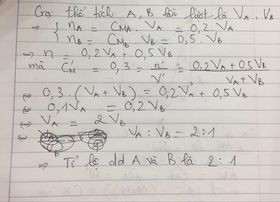 Gọi thể tích A, B lần lượt là V_A, V_B
→ { n_A = C_MA . V_A = 0,2 V_A
n_B = C_MB . V_B = 0,5 . V_B
→ n = 0,2 V_A + 0,5 V_B
mà C'_M = 0,3 = n'/V' = (0,2 V_A + 0,5 V_B)/(V_A + V_B)
0,3 . (V_A + V_B) = 0,2 V_A + 0,5 V_B
0,1 V_A = 0,2 V_B
V_A = 2 V_B
V_A : V_B = 2 : 1
⇒ Tỉ lệ dd A và B là 2 : 1